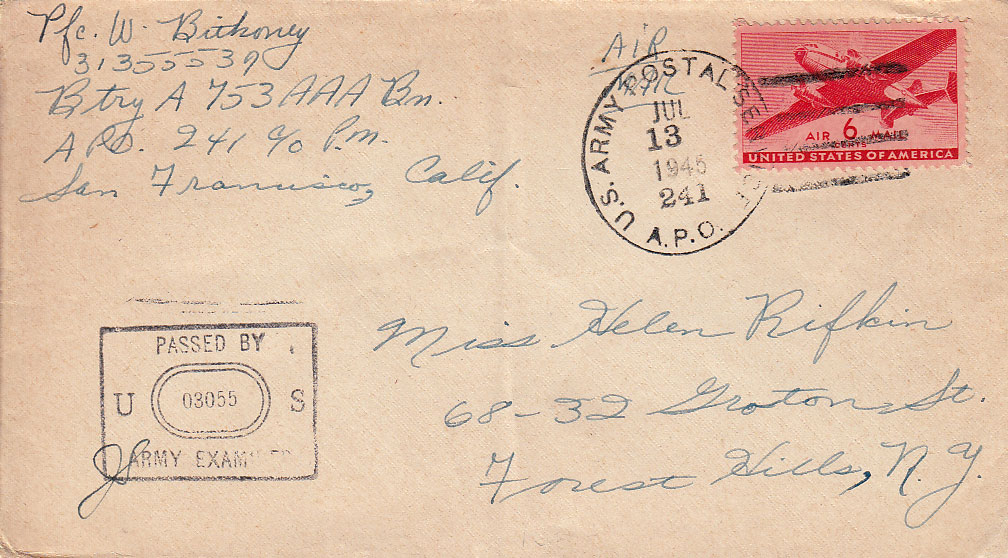 Pfc. W. Bithoney
31355539
Btry A 753 AAA Bn.
A.P.O. 241 c/o P.M.
San Francisco, Calif.
AIR
U.S. ARMY POSTAL SERVICE
JUL
13
1945
241
A.P.O.
AIR 6 MAIL
CENTS
UNITED STATES OF AMERICA
PASSED BY
U 03055 S
ARMY EXAMINER
Miss Helen Rifkin
68-32 Groton St.
Forest Hills, N.Y.